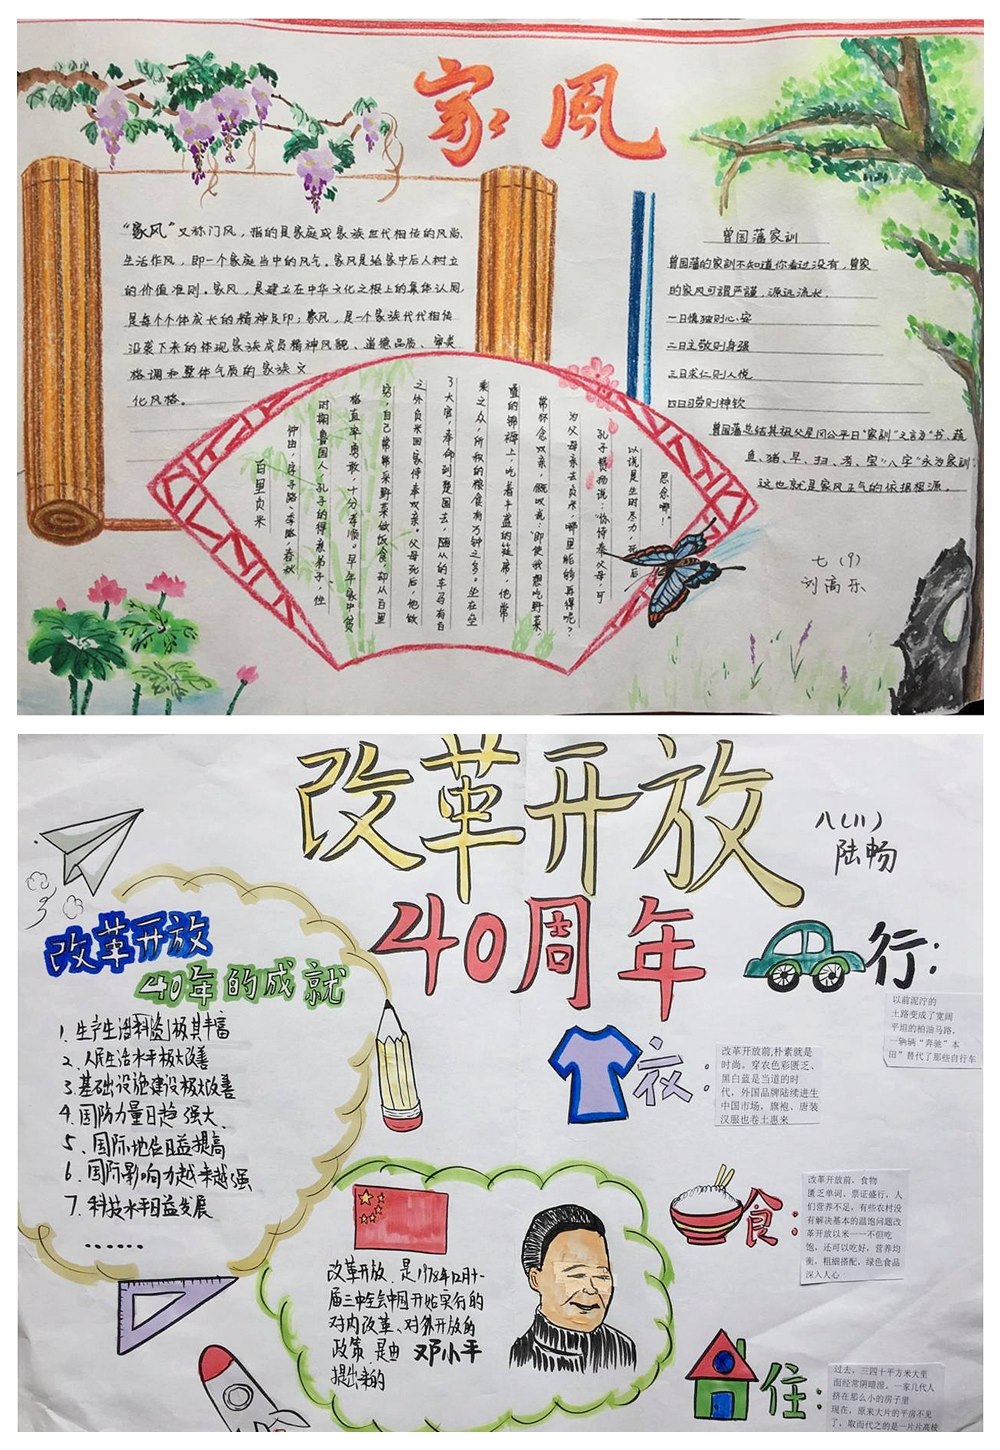 家风
“家风”又称门风，指的是家庭或家族世代相传的风尚、
生活作风，即一个家庭当中的风气。家风是给家中后人树立
的价值准则。家风，是建立在中华文化之根上的集体认同，
是每个个体成长的精神足印；家风，是一个家族代代相传
沿袭下来的体现家族成员精神风貌、道德品质、审美
格调和整体气质的家族文
化风格。
曾国藩家训
曾国藩的家训不知道你看过没有，曾家
的家风可谓严谨，源远流长。
一曰慎独则心安
二曰主敬则身强
三曰求仁则人悦
四曰习劳则神钦
曾国藩总结其祖父星冈公平日“家训”之言为“书、蔬、
鱼、猪、早、扫、考、宝”八字“永为家训”
这也就是家风正气的依据根源。
百里负米
仲由，字子路、季路，春秋
时期鲁国人，孔子的得意弟子，性
格直率勇敢，十分孝顺。早年家中贫
穷，自己常常采野菜做饭食，却从百里
之外负米回家侍奉双亲。父母死后，他做
了大官，奉命到楚国去，随从的车马有百
乘之众，所积的粮食有万钟之多。坐在垒
叠的锦褥上，吃着丰盛的筵席，他常
常怀念双亲，慨叹说：“即使我想吃野菜，
为父母亲去负米，哪里能够再得呢？”
孔子赞扬说：“你侍奉父母，可
以说是生时尽力，死后
思念哪！”
七（9）
刘滴乐
改革开放
40周年
八（11）
陆畅
改革开放
40年的成就
1. 生产生活料资极其丰富
2. 人民生活水平极大改善
3. 基础设施建设极大改善
4. 国防力量日趋强大.
5. 国际地位日益提高
6. 国际影响力越来越强
7. 科技水平日益发展
......
行：
以前泥泞的
土路变成了宽阔
平坦的柏油马路，
一辆辆“奔驰”本
田”替代了那些自行车
衣：
改革开放前,朴素就是
时尚。穿衣色彩匮乏、
黑白蓝是当道的时
代，外国品牌陆续进生
中国市场，旗袍、唐装
汉服也卷土惠来
食：
改革开放前，食物
匮乏单词、票证盛行，人
们营养不足，有些农村没
有解决基本的温饱问题改
革开放以米一一不但吃
饱，还可以吃好，营养均
衡，粗细搭配，绿色食品
深入人心
改革开放，是1978年12月十一
届三中全会中国开始实行的
对内改革、对外开放的
政策，是由 邓小平
提出来的
住：
过去，三四十平方米大里
面经常阴暗湿。一家几代人
挤在那么小的房子里
现在，原来大片的平房不见
了，取而代之的是一片片高楼